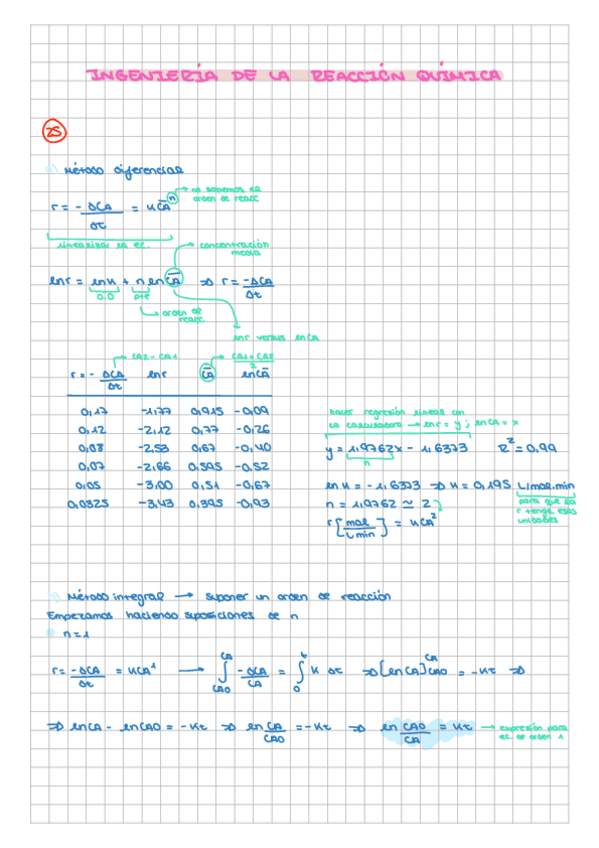 INGENIERÍA DE LA REACCIÓN QUÍMICA
25
a) Método diferencial
r = - ΔCA/Δt = k C̄A^n → no sabemos el orden de reacc
linealizar la ec.
→ concentración media
ln r = ln k + n ln C̄A ⇒ r = -ΔCA/Δt
o.o pte
→ orden de reacc
ln r versus ln CA
→ CA2 - CA1 → CA1 + CA2 / 2
r = - ΔCA/Δt ln r C̄A ln C̄A
0,17 -1,77 0,915 -0,09
0,12 -2,12 0,77 -0,26
0,08 -2,53 0,67 -0,40
0,07 -2,66 0,595 -0,52
0,05 -3,00 0,51 -0,67
0,0325 -3,43 0,395 -0,93
hacer regresión lineal con
la calculadora → ln r = y ; ln CA = x
y = 1,9762x - 1,6373 R² = 0,99
n
ln k = -1,6373 ⇒ k = 0,195 L/mol.min
n = 1,9762 ≃ 2
para que la r tenga esas unidades
r [mol/L min] = k CA²
b) Método integral → suponer un orden de reacción
Empezamos haciendo suposiciones de n
n = 1
r = -ΔCA/Δt = k CA¹ → ∫CA0^CA -ΔCA/CA = ∫0^t k Δt ⇒ [ln CA]CA0^CA = -kt ⇒
⇒ ln CA - ln CA0 = -kt ⇒ ln CA/CA0 = -kt ⇒ ln CA0/CA = kt → expresión para ec. de orden 1